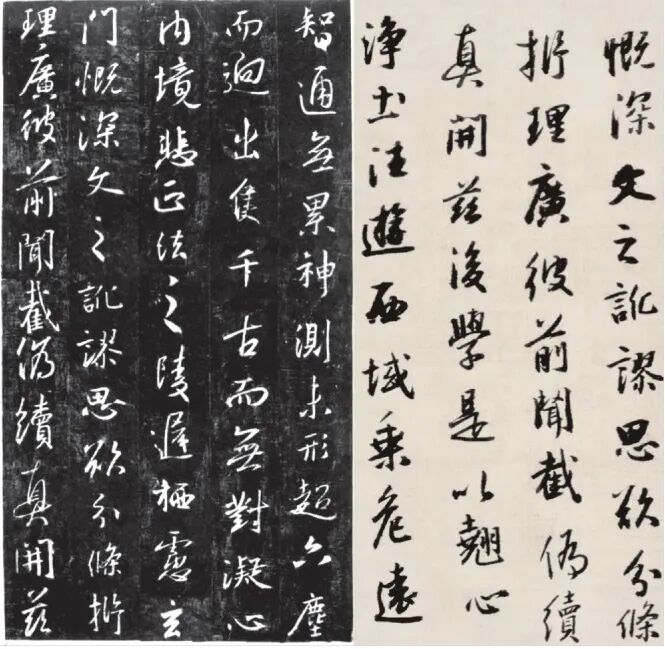 智通無累神測未形超六塵
而迥出隻千古而無對凝心
內境悲正法之陵遲栖慮玄
門慨深文之訛謬思欲分條析
理廣彼前聞截偽續真開茲
慨深文之訛謬思欲分條
析理廣彼前聞截偽續
真開茲後學是以翹心
淨土往遊西域乘危遠